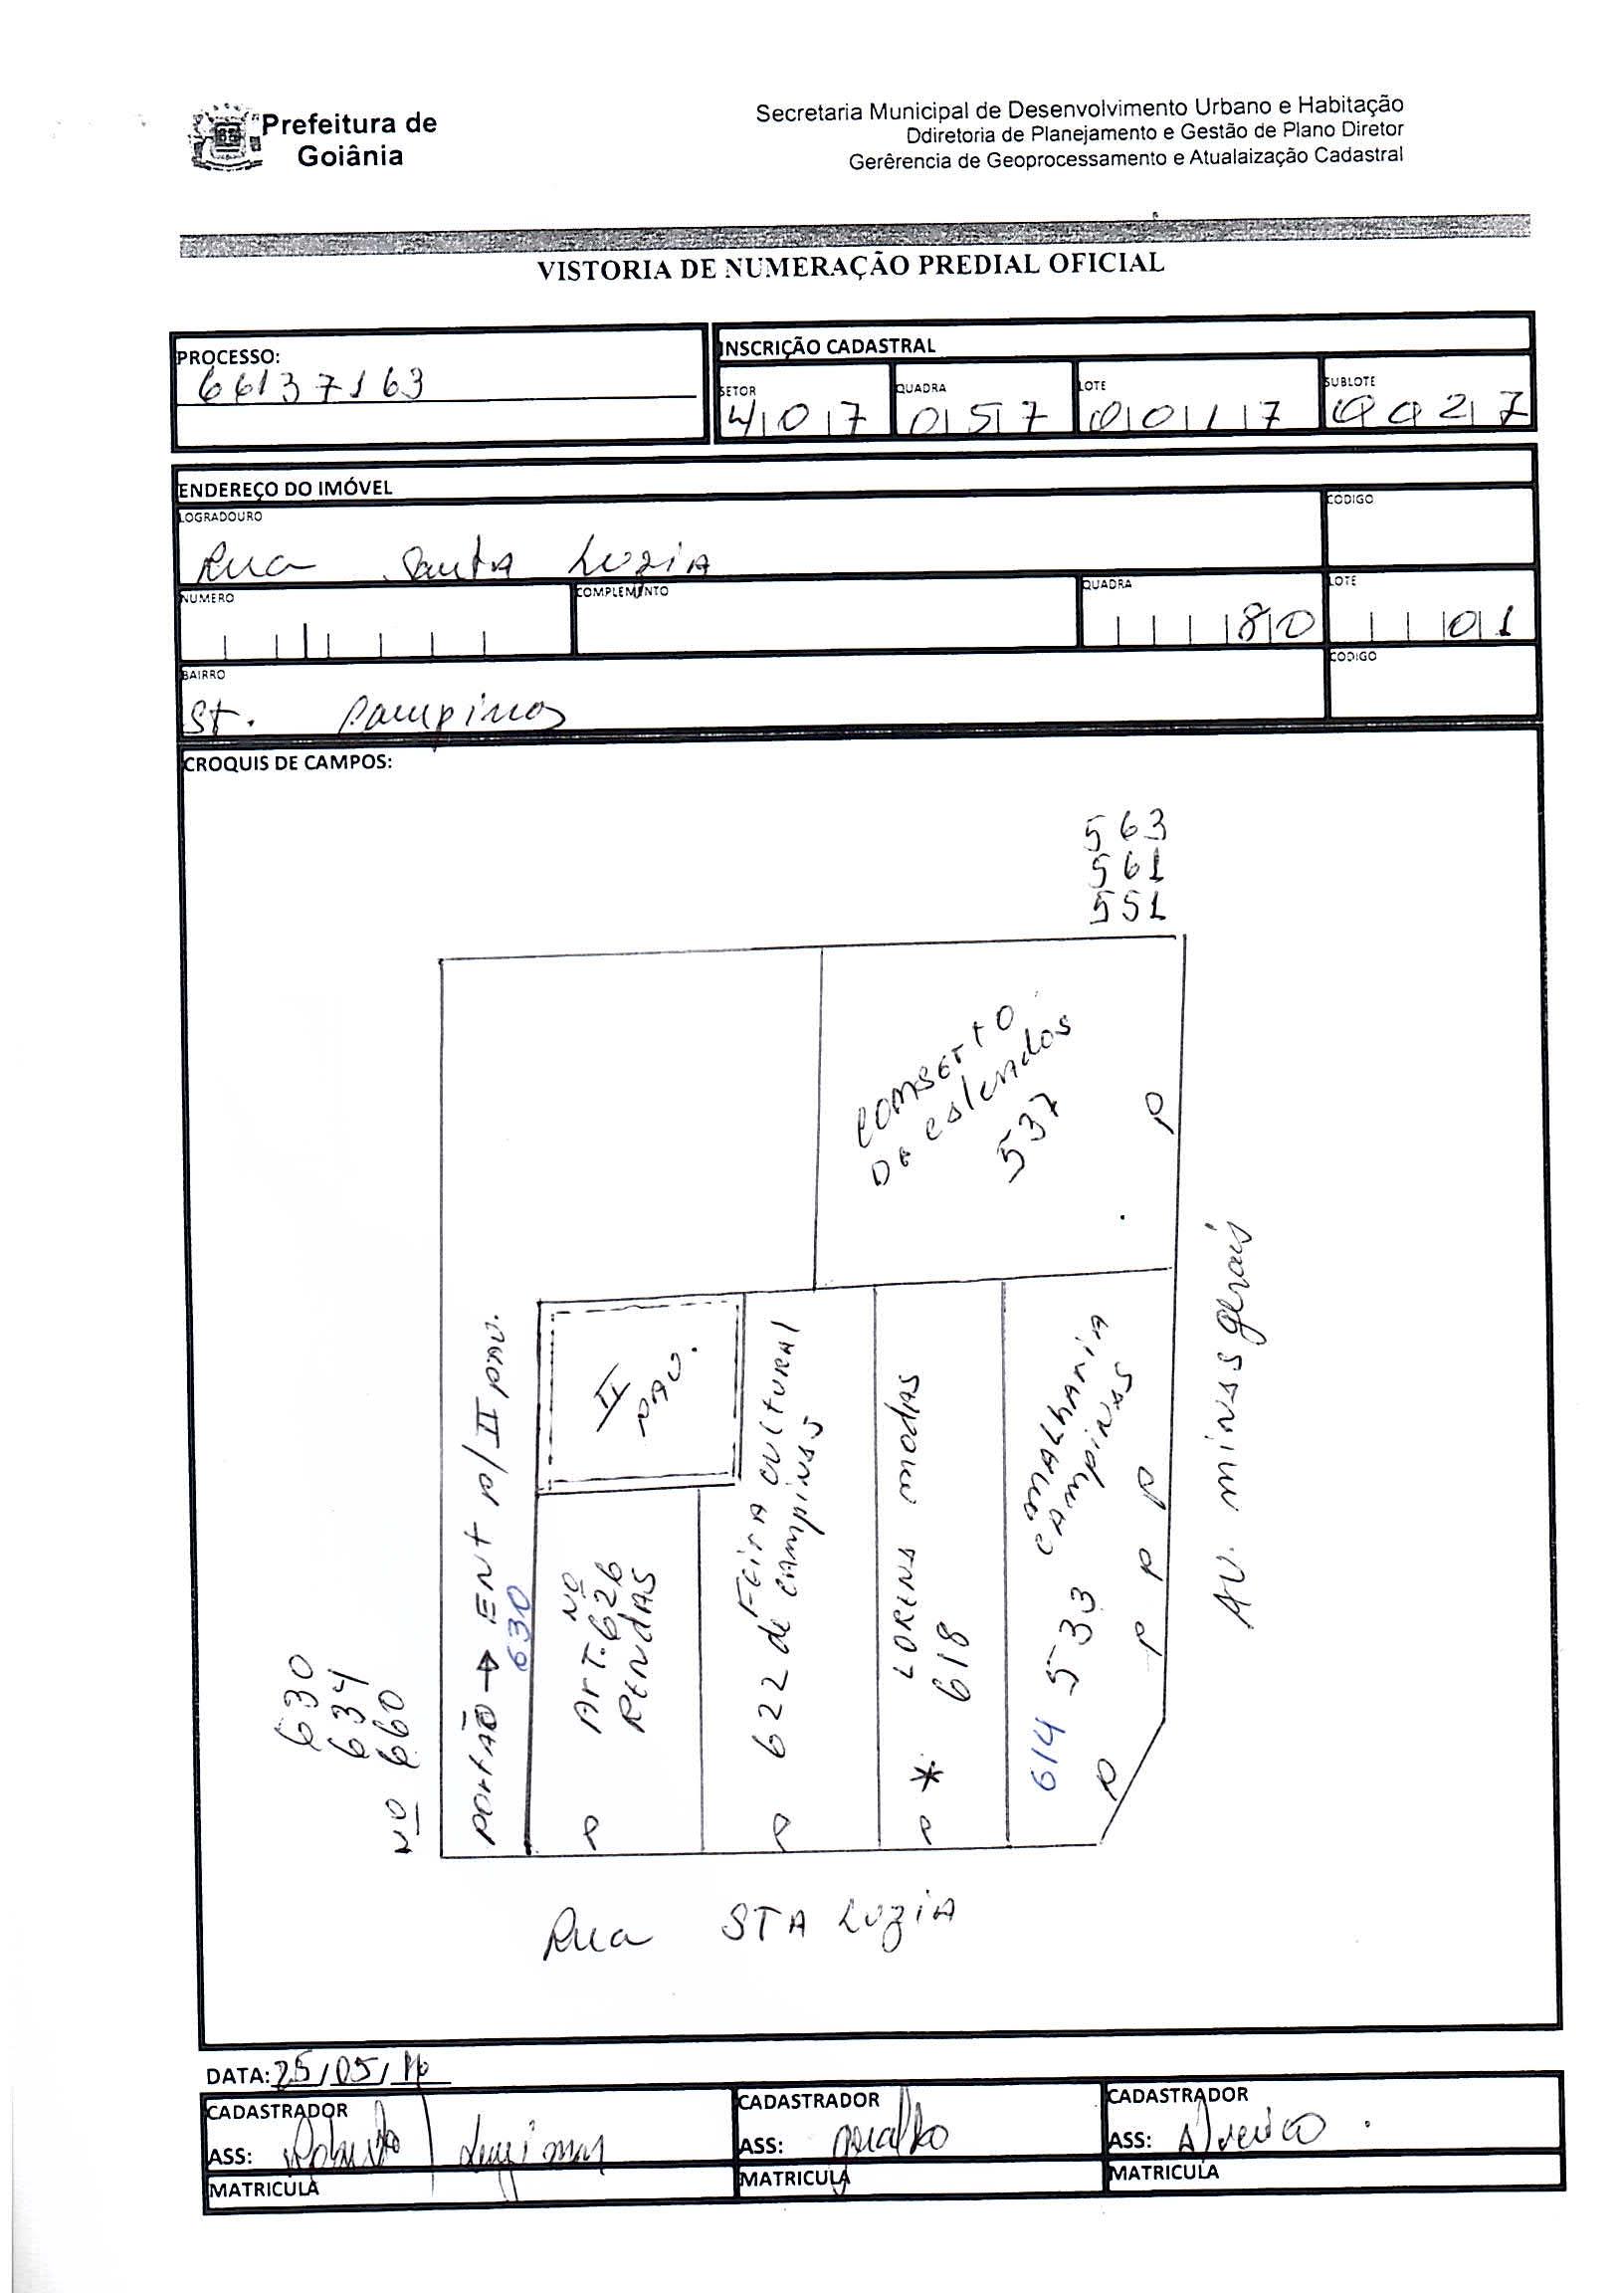 Prefeitura de
Goiânia
Secretaria Municipal de Desenvolvimento Urbano e Habitação
Ddiretoria de Planejamento e Gestão de Plano Diretor
Gerêrencia de Geoprocessamento e Atualaização Cadastral
VISTORIA DE NUMERAÇÃO PREDIAL OFICIAL
PROCESSO:
66137163
INSCRIÇÃO CADASTRAL
SETOR QUADRA LOTE SUBLOTE
407 057 0017 0027
ENDEREÇO DO IMÓVEL
LOGRADOURO CODIGO
Rua Santa Luzia
NUMERO COMPLEMENTO QUADRA LOTE
80 01
BAIRRO CODIGO
St. Campinas
CROQUIS DE CAMPOS:
563
561
551
conserto
De calçados
537
P
Av. minas gerais
portão → ENt p/ II pav.
630
II
PAV.
Art. Nº 626
RENDAS
P
622 Feira cultural
de campinas
P
LORENS modas
618
* P
comalharia
campinas
533
614
P P P
P
630
634
Nº 660
Rua STA Luzia
DATA: 25/05/16
CADASTRADOR CADASTRADOR CADASTRADOR
ASS: ASS: Geraldo ASS:
MATRICULA MATRICULA MATRICULA